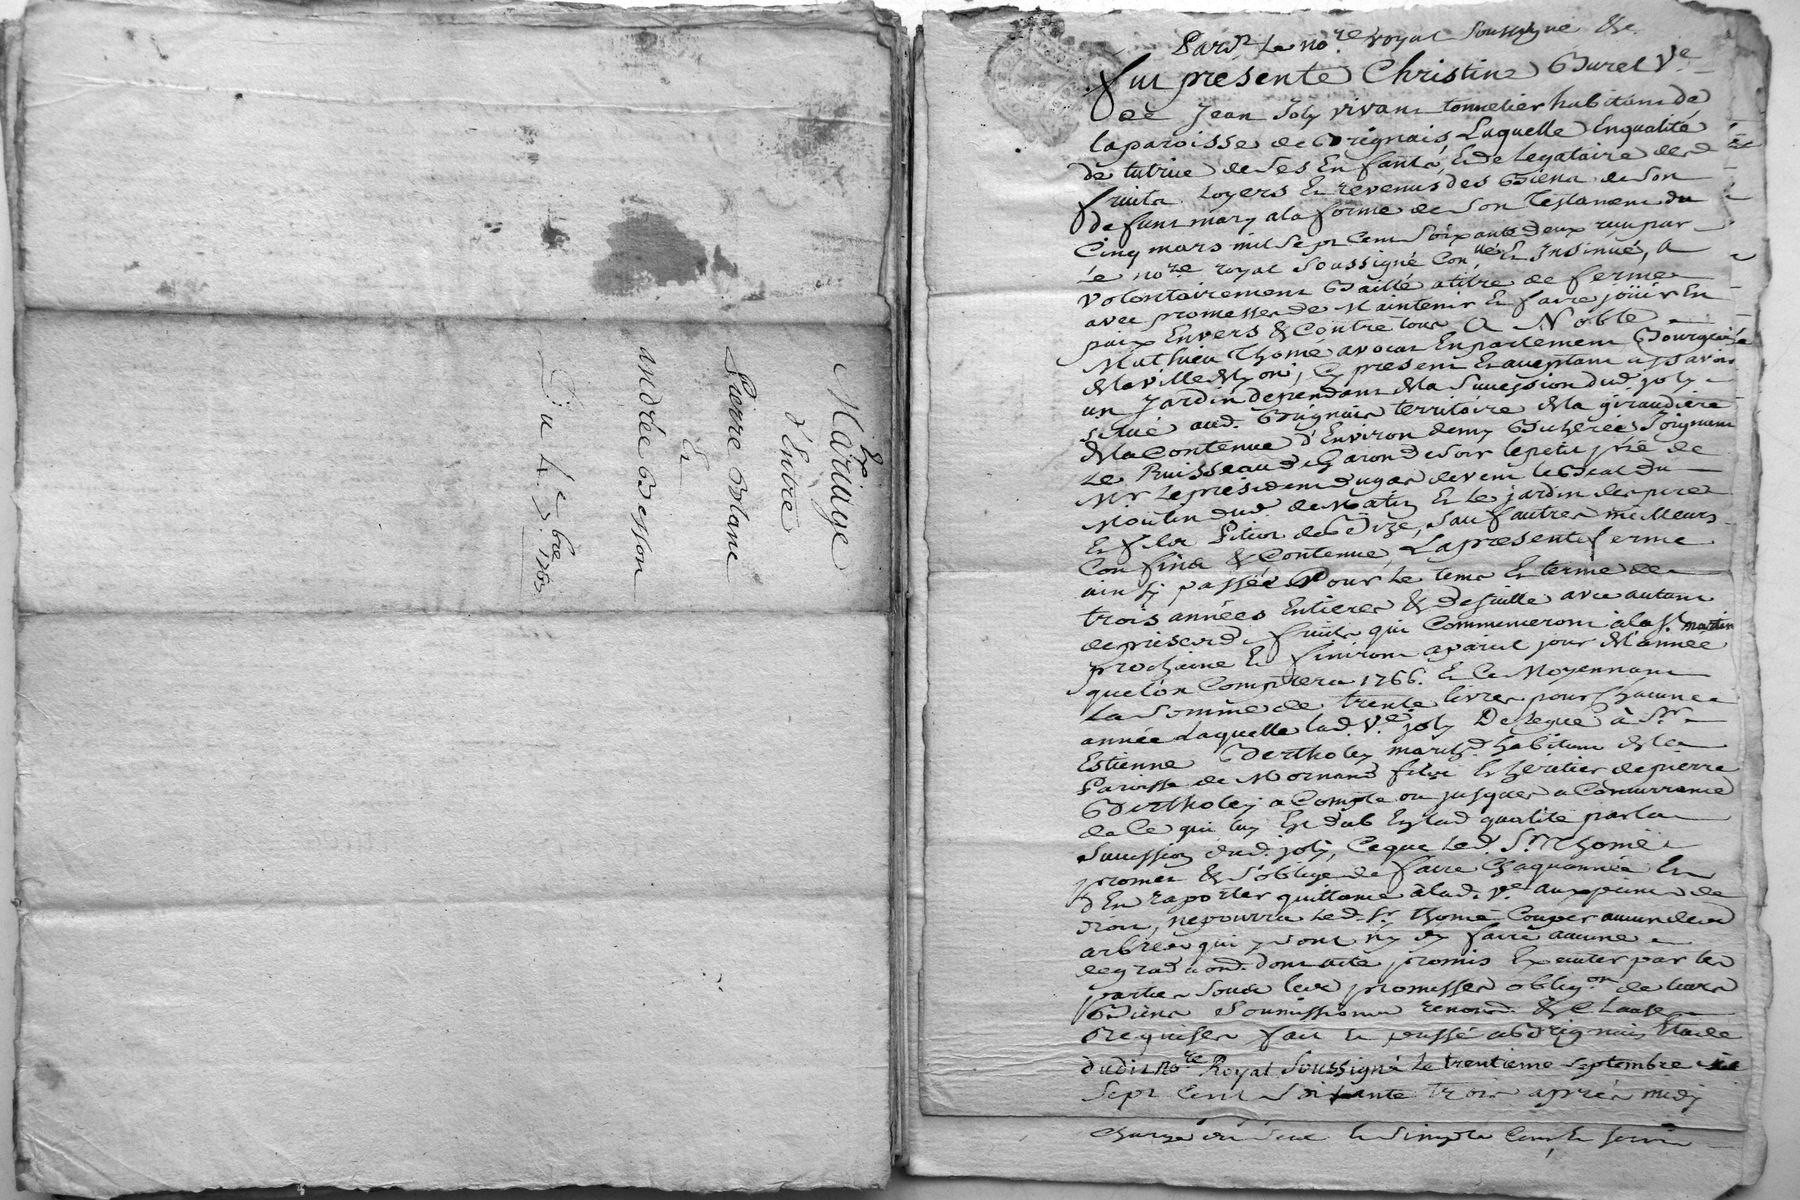 Mariage
d'Entre
Pierre Blanc
Et
andrée Besson
Du 4.e 1763
Pard.t Le no.re royal soussigné &c
fut presente Christine Burel V.e
de Jean Joly vivant tonnelier habitant de
la paroisse de Brignais, Laquelle En qualité
de tutrice de ses Enfants, Et de Legataire des
fruits Loyers Et revenus des Biens de son
defunt mary a la forme de son Testament du
Cinq mars mil sept Cent soixante deux reçu par
le no.re royal soussigné Con.lé Et Insinué, a
volontairement Baillé a titre de ferme
avec promesse de Maintenir Et faire joüir En
paix Envers & Contre tous A Noble
Mathieu Thomé avocat En parlement Bourgeois
de la ville de Lyon, Cy present Et acceptant asçavoir
un Jardin dependant de la Succession dud. joly
situé aud. Brignais territoire de la giraudiere
de la Contenue d'Environ demy Bicherée, Joignant
Le Ruisseau de Garon de soir le petit pré de
Mr Le president dugas de vent le Bieal du
Moulin dud. de Matin Et le jardin des pere
Et fils de Bize, sauf autres meilleurs
Confins & Contenue, La presente ferme
ainsy passée Pour Le tems Et terme de
trois années Entieres & de suitte avec autant
de prises de fruits qui Commenceront a la St. martin
prochaine Et finiront a pareil jour de l'année
que lon Comptera 1766. Et Ce Moyennant
La Somme de trente livres pour Chacune
année Laquelle lad. V.e joly Delegue à Sr.
Estienne Bertholey march.d habitant de la
Paroisse de Mornand fils Et heritier de pierre
Bertholey a Compte ou jusques a Concurrance
de Ce qui luy Est dub En lad. qualité par la
Succession dud. joly, Ce que led. Sr. Thomé
promet & s'oblige de faire Chaque année Et
d'En raporter quittance à lad. V.e aux peines de
droit, ne pourra led. Sr. Thomé Couper aucun des
arbres qui y sont ny y faire aucune
degradaon. dont acte promis Executer par les
parties sous leur promesses oblig.on de leurs
Biens Soumissions renon.s &c Clauses
Requises fait Et passé a Brignais Etude
dudit no.re Royal Soussigné Le trentieme Septembre mil
Sept Cent Soixante trois après midy